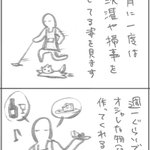 月に一度は
洗濯や掃事を
してる夢を見ます
週一くらいで
オシャレな物
作ってくれる
♪